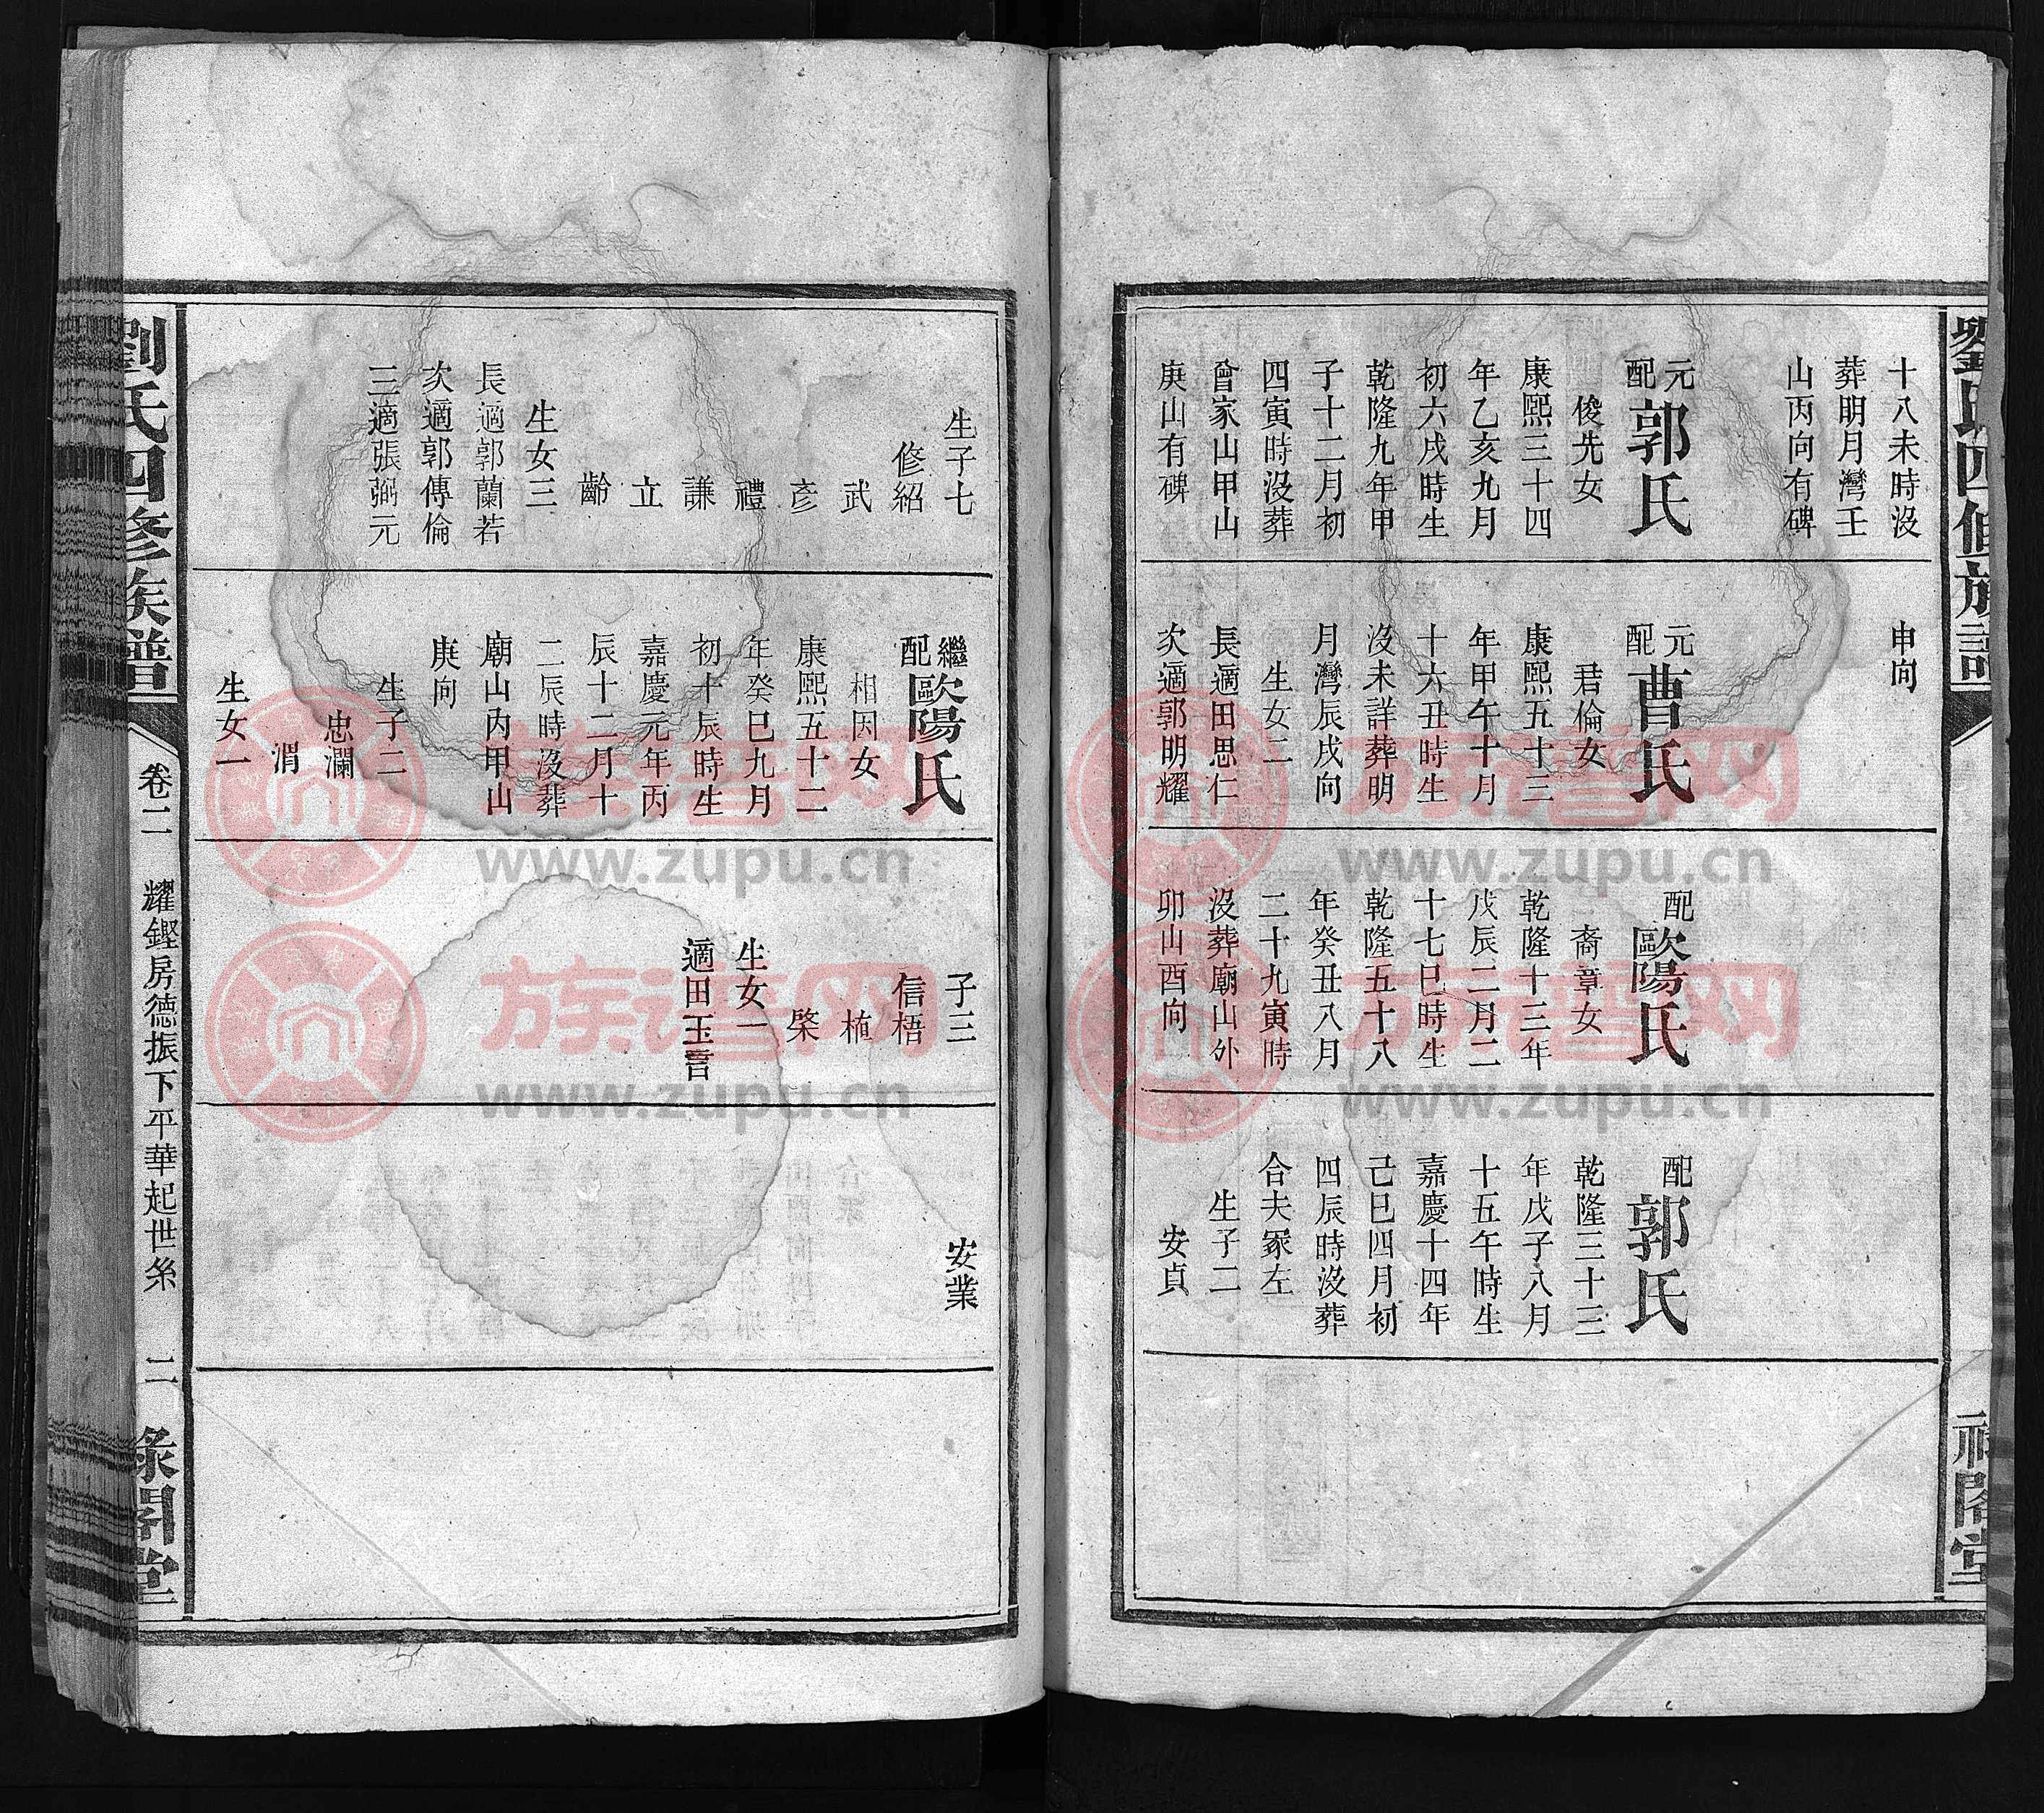 劉氏四修族譜
祿閣堂
十八未時沒
葬明月灣壬
山丙向有碑
元配郭氏
俊先女
康熙三十四
年乙亥九月
初六戌時生
乾隆九年甲
子十二月初
四寅時沒葬
曾家山甲山
庚山有碑
申向
元配曹氏
君倫女
康熙五十三
年甲午十月
十六丑時生
沒未詳葬明
月灣辰戌向
生女二
長適田思仁
次適郭明耀
配歐陽氏
裔章女
乾隆十三年
戊辰二月二
十七巳時生
乾隆五十八
年癸丑八月
二十九寅時
沒葬廟山外
卯山酉向
配郭氏
乾隆三十三
年戊子八月
十五午時生
嘉慶十四年
己巳四月初
四辰時沒葬
合夫冢左
生子二
安貞
生子七
修紹
武
彥
禮
謙
立
齡
生女三
長適郭蘭若
次適郭傳倫
三適張弼元
繼配歐陽氏
相因女
康熙五十二
年癸巳九月
初十辰時生
嘉慶元年丙
辰十二月十
二辰時沒葬
廟山內甲山
庚向
生子二
忠瀾
渭
生女一
子三
信梧
植
棨
生女一
適田玉言
安業
劉氏四修族譜
卷二
耀鏗房德振下平華起世系
二
祿閣堂
族谱网
www.zupu.cn
族谱网
www.zupu.cn
族谱网
www.zupu.cn
族谱网
www.zupu.cn